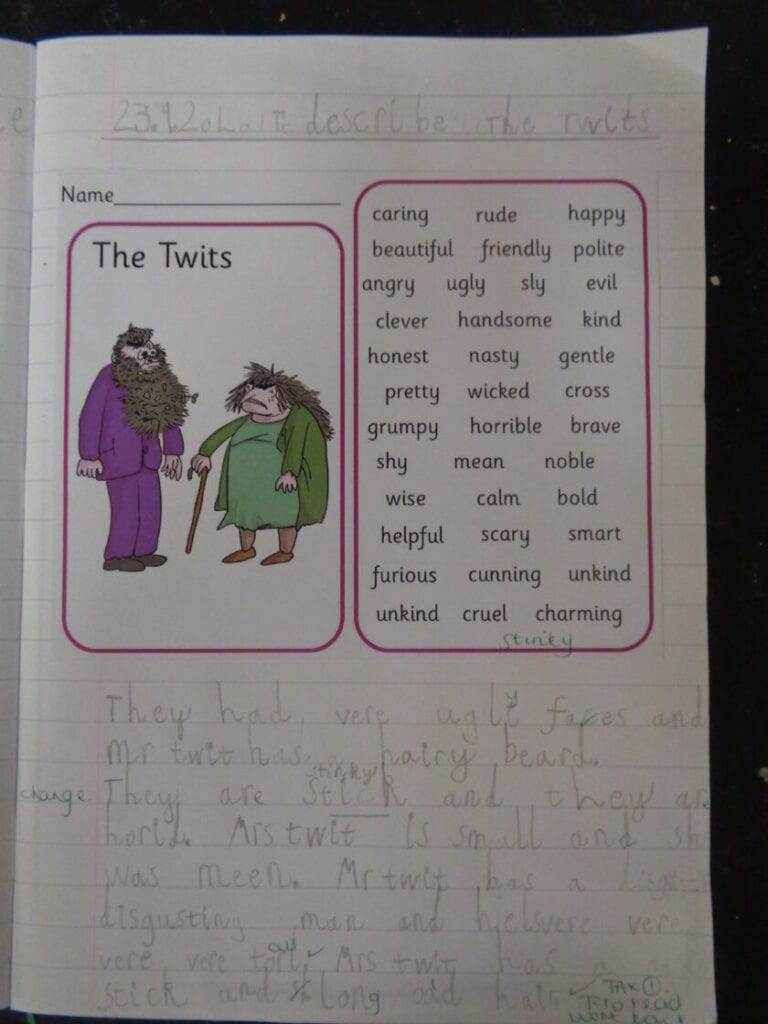 23.9.20 L.O. To describe The Twits
Name
The Twits
caring rude happy
beautiful friendly polite
angry ugly sly evil
clever handsome kind
honest nasty gentle
pretty wicked cross
grumpy horrible brave
shy mean noble
wise calm bold
helpful scary smart
furious cunning unkind
unkind cruel charming
stinky
They had vere ugli faces and
y
Mr twit has a hairy beard.
stinky
change They are Stick and they are
horid. Mrs twit is small and sh
was meen. Mr twit has a
disgusting man and vere
all
vere vere torl. Mrs twit has a
stick and long hair